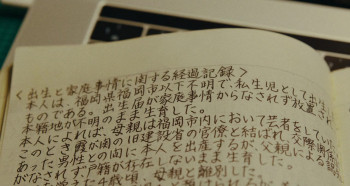 <出生と家庭事情に関する経過記録>
本人は、福岡県福岡市以下不明で、私生児として出生
ものである。出生届が家庭事情からなされず放置され
本籍地が不明のまま生育した。
本人によれば、母親は福岡市内において芸者をしてい
このとき霞が関の旧建設省の官僚と結ばれ、交際関係
あった男性との間に本人を出産するが、父親による認
がなされず戸籍が存在しないまま生育した。
歳頃、母親と離別した。